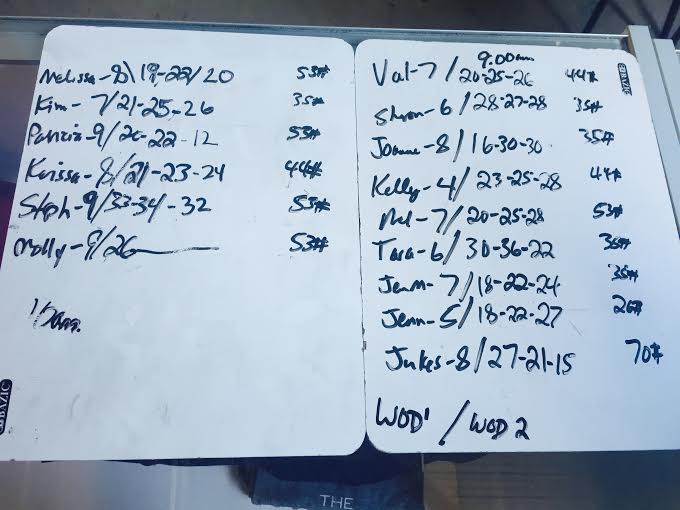 Melissa-8/19-22/20 53#
Kim-7/21-25-26 35#
Patrizia-9/20-22-12 53#
Kerissa-8/21-23-24 44#
Steph-9/33-34-32 53#
Molly-9/26 53#
BAZIC
9:00am
Val-7/20-25-26 44#
Sharon-6/28-27-28 35#
Joanne-8/16-30-30 35#
Kelly-4/23-25-28 44#
Mel-7/20-25-28 53#
Tara-6/30-36-22 35#
Jenn-7/18-22-24 35#
Jenn-5/18-22-27 26#
Jukes-8/27-21-15 70#
WOD1/WOD 2
BAZIC
THE